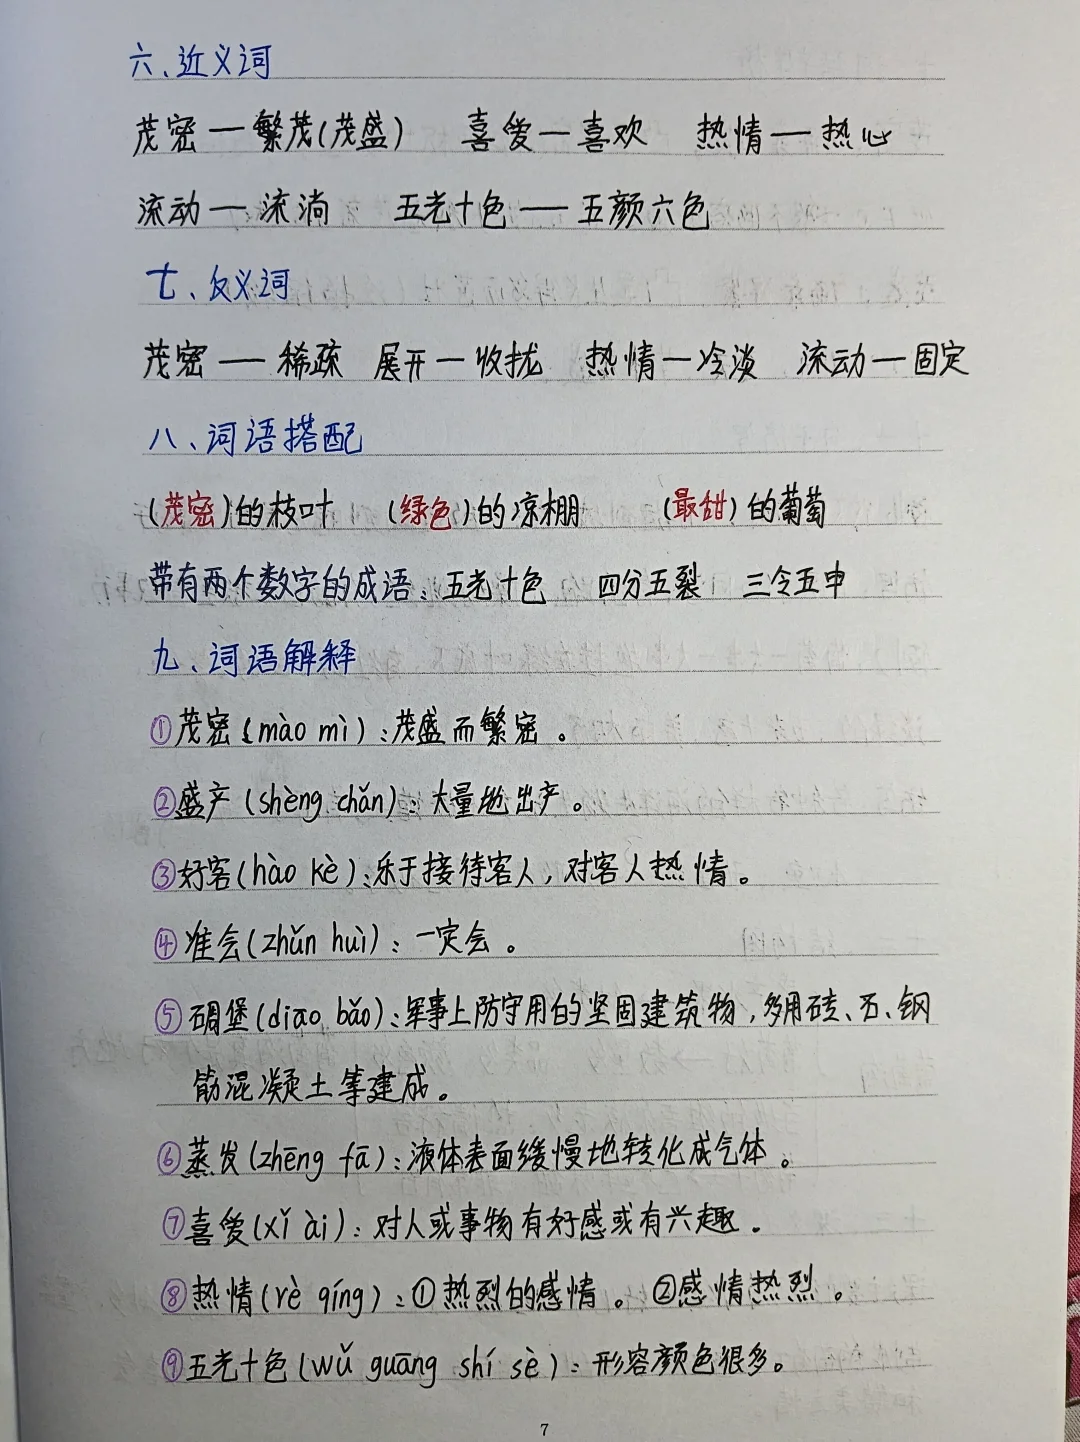 六、近义词
茂密—繁茂(茂盛) 喜爱—喜欢 热情—热心
流动—流淌 五光十色—五颜六色
七、反义词
茂密—稀疏 展开—收拢 热情—冷淡 流动—固定
八、词语搭配
(茂密)的枝叶 (绿色)的凉棚 (最甜)的葡萄
带有两个数字的成语：五光十色 四分五裂 三令五申
九、词语解释
①茂密(mào mì)：茂盛而繁密。
②盛产(shèng chǎn)：大量地出产。
③好客(hào kè)：乐于接待客人，对客人热情。
④准会(zhǔn huì)：一定会。
⑤碉堡(diāo bǎo)：军事上防守用的坚固建筑物，多用砖、石、钢
筋混凝土等建成。
⑥蒸发(zhēng fā)：液体表面缓慢地转化成气体。
⑦喜爱(xǐ ài)：对人或事物有好感或有兴趣。
⑧热情(rè qíng)：①热烈的感情。②感情热烈。
⑨五光十色(wǔ guāng shí sè)：形容颜色很多。
7